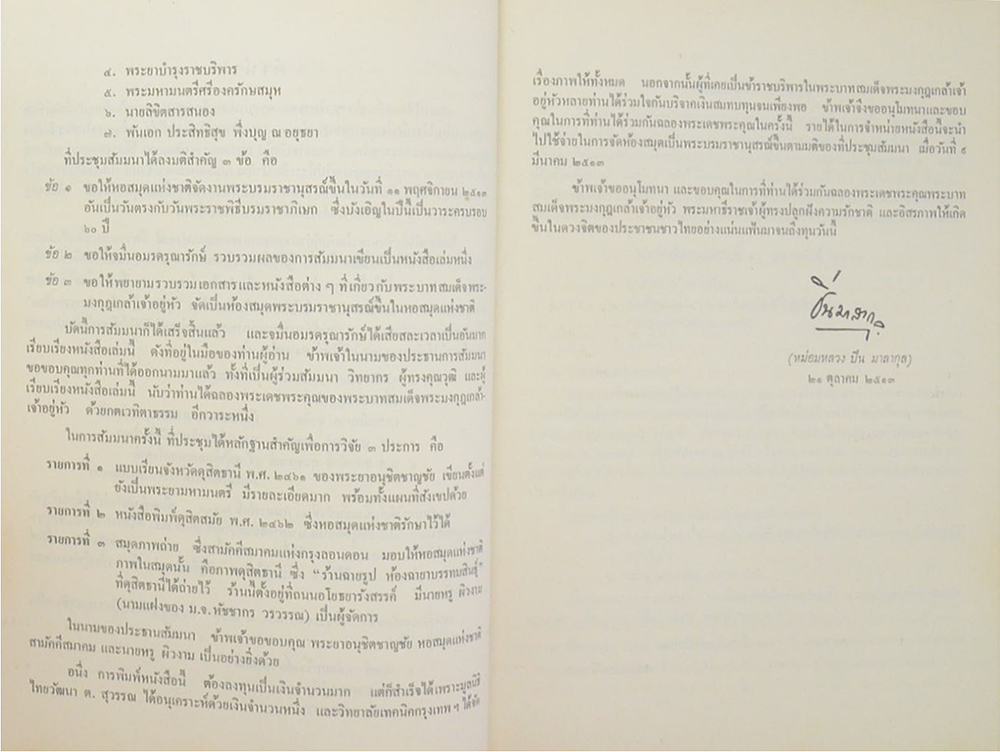 ๔. พระยาบำรุงราชบริพาร
๕. พระมหามนตรีศรีองครักษสมุห
๖. นายลิขิตสารสนอง
๗. พันเอก ประสิทธิสุข พึ่งบุญ ณ อยุธยา
ที่ประชุมสัมมนาได้ลงมติสำคัญ ๓ ข้อ คือ
ข้อ ๑ ขอให้หอสมุดแห่งชาติจัดงานพระบรมราชานุสรณ์ขึ้นในวันที่ ๑๑ พฤศจิกายน ๒๕๑๓
อันเป็นวันตรงกับวันพระราชพิธีบรมราชาภิเษก ซึ่งบังเอิญในปีนี้เป็นวาระครบรอบ
๖๐ ปี
ข้อ ๒ ขอให้จมื่นอมรดรุณารักษ์ รวบรวมผลของการสัมมนาเขียนเป็นหนังสือเล่มหนึ่ง
ข้อ ๓ ขอให้พยายามรวบรวมเอกสารและหนังสือต่าง ๆ ที่เกี่ยวกับพระบาทสมเด็จพระ-
มงกุฎเกล้าเจ้าอยู่หัว จัดเป็นห้องสมุดพระบรมราชานุสรณ์ขึ้นในหอสมุดแห่งชาติ
บัดนี้การสัมมนาก็ได้เสร็จสิ้นแล้ว และจมื่นอมรดรุณารักษ์ได้เสียสละเวลาเป็นอันมาก
เรียบเรียงหนังสือเล่มนี้ ดังที่อยู่ในมือของท่านผู้อ่าน ข้าพเจ้าในนามของประธานการสัมมนา
ขอขอบคุณทุกท่านที่ได้ออกนามมาแล้ว ทั้งที่เป็นผู้ร่วมสัมมนา วิทยากร ผู้ทรงคุณวุฒิ และผู้
เรียบเรียงหนังสือเล่มนี้ นับว่าท่านได้ฉลองพระเดชพระคุณของพระบาทสมเด็จพระมงกุฎเกล้า-
เจ้าอยู่หัว ด้วยกตเวทิตาธรรม อีกวาระหนึ่ง
ในการสัมมนาครั้งนี้ ที่ประชุมได้หลักฐานสำคัญเพื่อการวิจัย ๓ ประการ คือ
รายการที่ ๑ แบบเรียนจังหวัดดุสิตธานี พ.ศ. ๒๔๖๑ ของพระยาอนุชิตชาญชัย เขียนตั้งแต่
ยังเป็นพระยามหามนตรี มีรายละเอียดมาก พร้อมทั้งแผนที่สังเขปด้วย
รายการที่ ๒ หนังสือพิมพ์ดุสิตสมัย พ.ศ. ๒๔๖๒ ซึ่งหอสมุดแห่งชาติรักษาไว้ได้
รายการที่ ๓ สมุดภาพถ่าย ซึ่งสามัคคีสมาคมแห่งกรุงลอนดอน มอบให้หอสมุดแห่งชาติ
ภาพในสมุดนั้น คือภาพดุสิตธานี ซึ่ง “ร้านฉายรูป ห้องฉายาบรรทมสินธุ์”
ที่ดุสิตธานีได้ถ่ายไว้ ร้านนี้ตั้งอยู่ที่ถนนอโยธยารังสรรค์ มีนายหรู ผิวงาม
(นามแฝงของ ม.จ.หัชชากร วรวรรณ) เป็นผู้จัดการ
ในนามของประธานสัมมนา ข้าพเจ้าขอขอบคุณ พระยาอนุชิตชาญชัย หอสมุดแห่งชาติ
สามัคคีสมาคม และนายหรู ผิวงาม เป็นอย่างยิ่งด้วย
อนึ่ง การพิมพ์หนังสือนี้ ต้องลงทุนเป็นเงินจำนวนมาก แต่ก็สำเร็จได้เพราะมูลนิธิ
ไทยวัฒนา ต. สุวรรณ ได้อนุเคราะห์ด้วยเงินจำนวนหนึ่ง และวิทยาลัยเทคนิคกรุงเทพ ฯ ได้จัด
เรื่องภาพให้ทั้งหมด นอกจากนั้นผู้ที่เคยเป็นข้าราชบริพารในพระบาทสมเด็จพระมงกุฎเกล้าเจ้า
อยู่หัวหลายท่านได้ร่วมใจกันบริจาคเงินสมทบทุนจนเพียงพอ ข้าพเจ้าจึงขออนุโมทนาและขอบ
คุณในการที่ท่านได้ร่วมกันฉลองพระเดชพระคุณในครั้งนี้ รายได้ในการจำหน่ายหนังสือนี้จะนำ
ไปใช้จ่ายในการจัดห้องสมุดเป็นพระบรมราชานุสรณ์ขึ้นตามมติของที่ประชุมสัมมนา เมื่อวันที่ ๙
มีนาคม ๒๕๑๓
ข้าพเจ้าขออนุโมทนา และขอบคุณในการที่ท่านได้ร่วมกันฉลองพระเดชพระคุณพระบาท
สมเด็จพระมงกุฎเกล้าเจ้าอยู่หัว พระมหาธีรราชเจ้าผู้ทรงปลูกฝังความรักชาติ และอิสรภาพให้เกิด
ขึ้นในดวงจิตของประชาชนชาวไทยอย่างแน่นแฟ้นมาจนถึงทุกวันนี้
ปิ่น มาลากุล
(หม่อมหลวง ปิ่น มาลากุล)
๒๑ ตุลาคม ๒๕๑๓